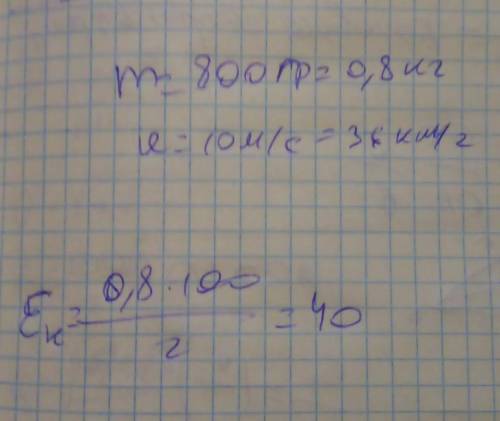 m = 800 гр = 0,8 кг
v = 10 м/с = 36 км/г
Eк = 0,8 · 100 / 2 = 40